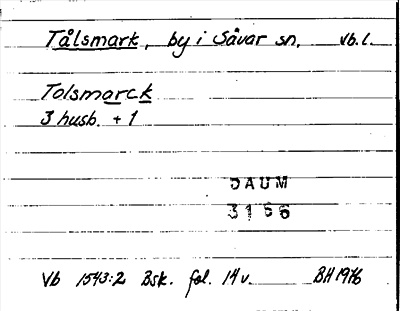 Tålsmark, by i Sävar sn. Vb.l.
Tolsmarck
3 husb. + 1
DAUM
3166
Vb 1543:2 Bsk. fol. 14 v. BH 1976